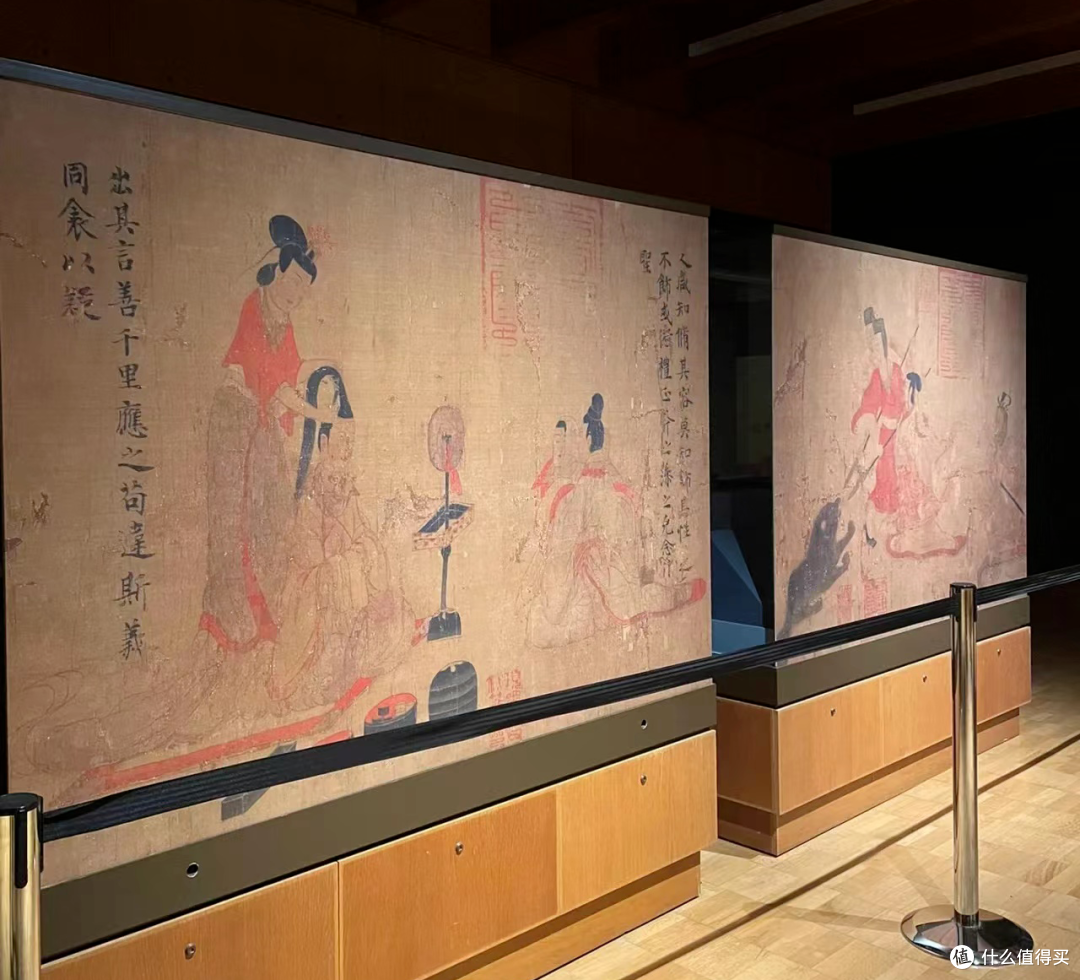 人咸知脩其容莫知飾其性之
不飾或愆禮正斧之藻之克念作
聖
出其言善千里應之苟違斯義
同衾以疑
值 什么值得买